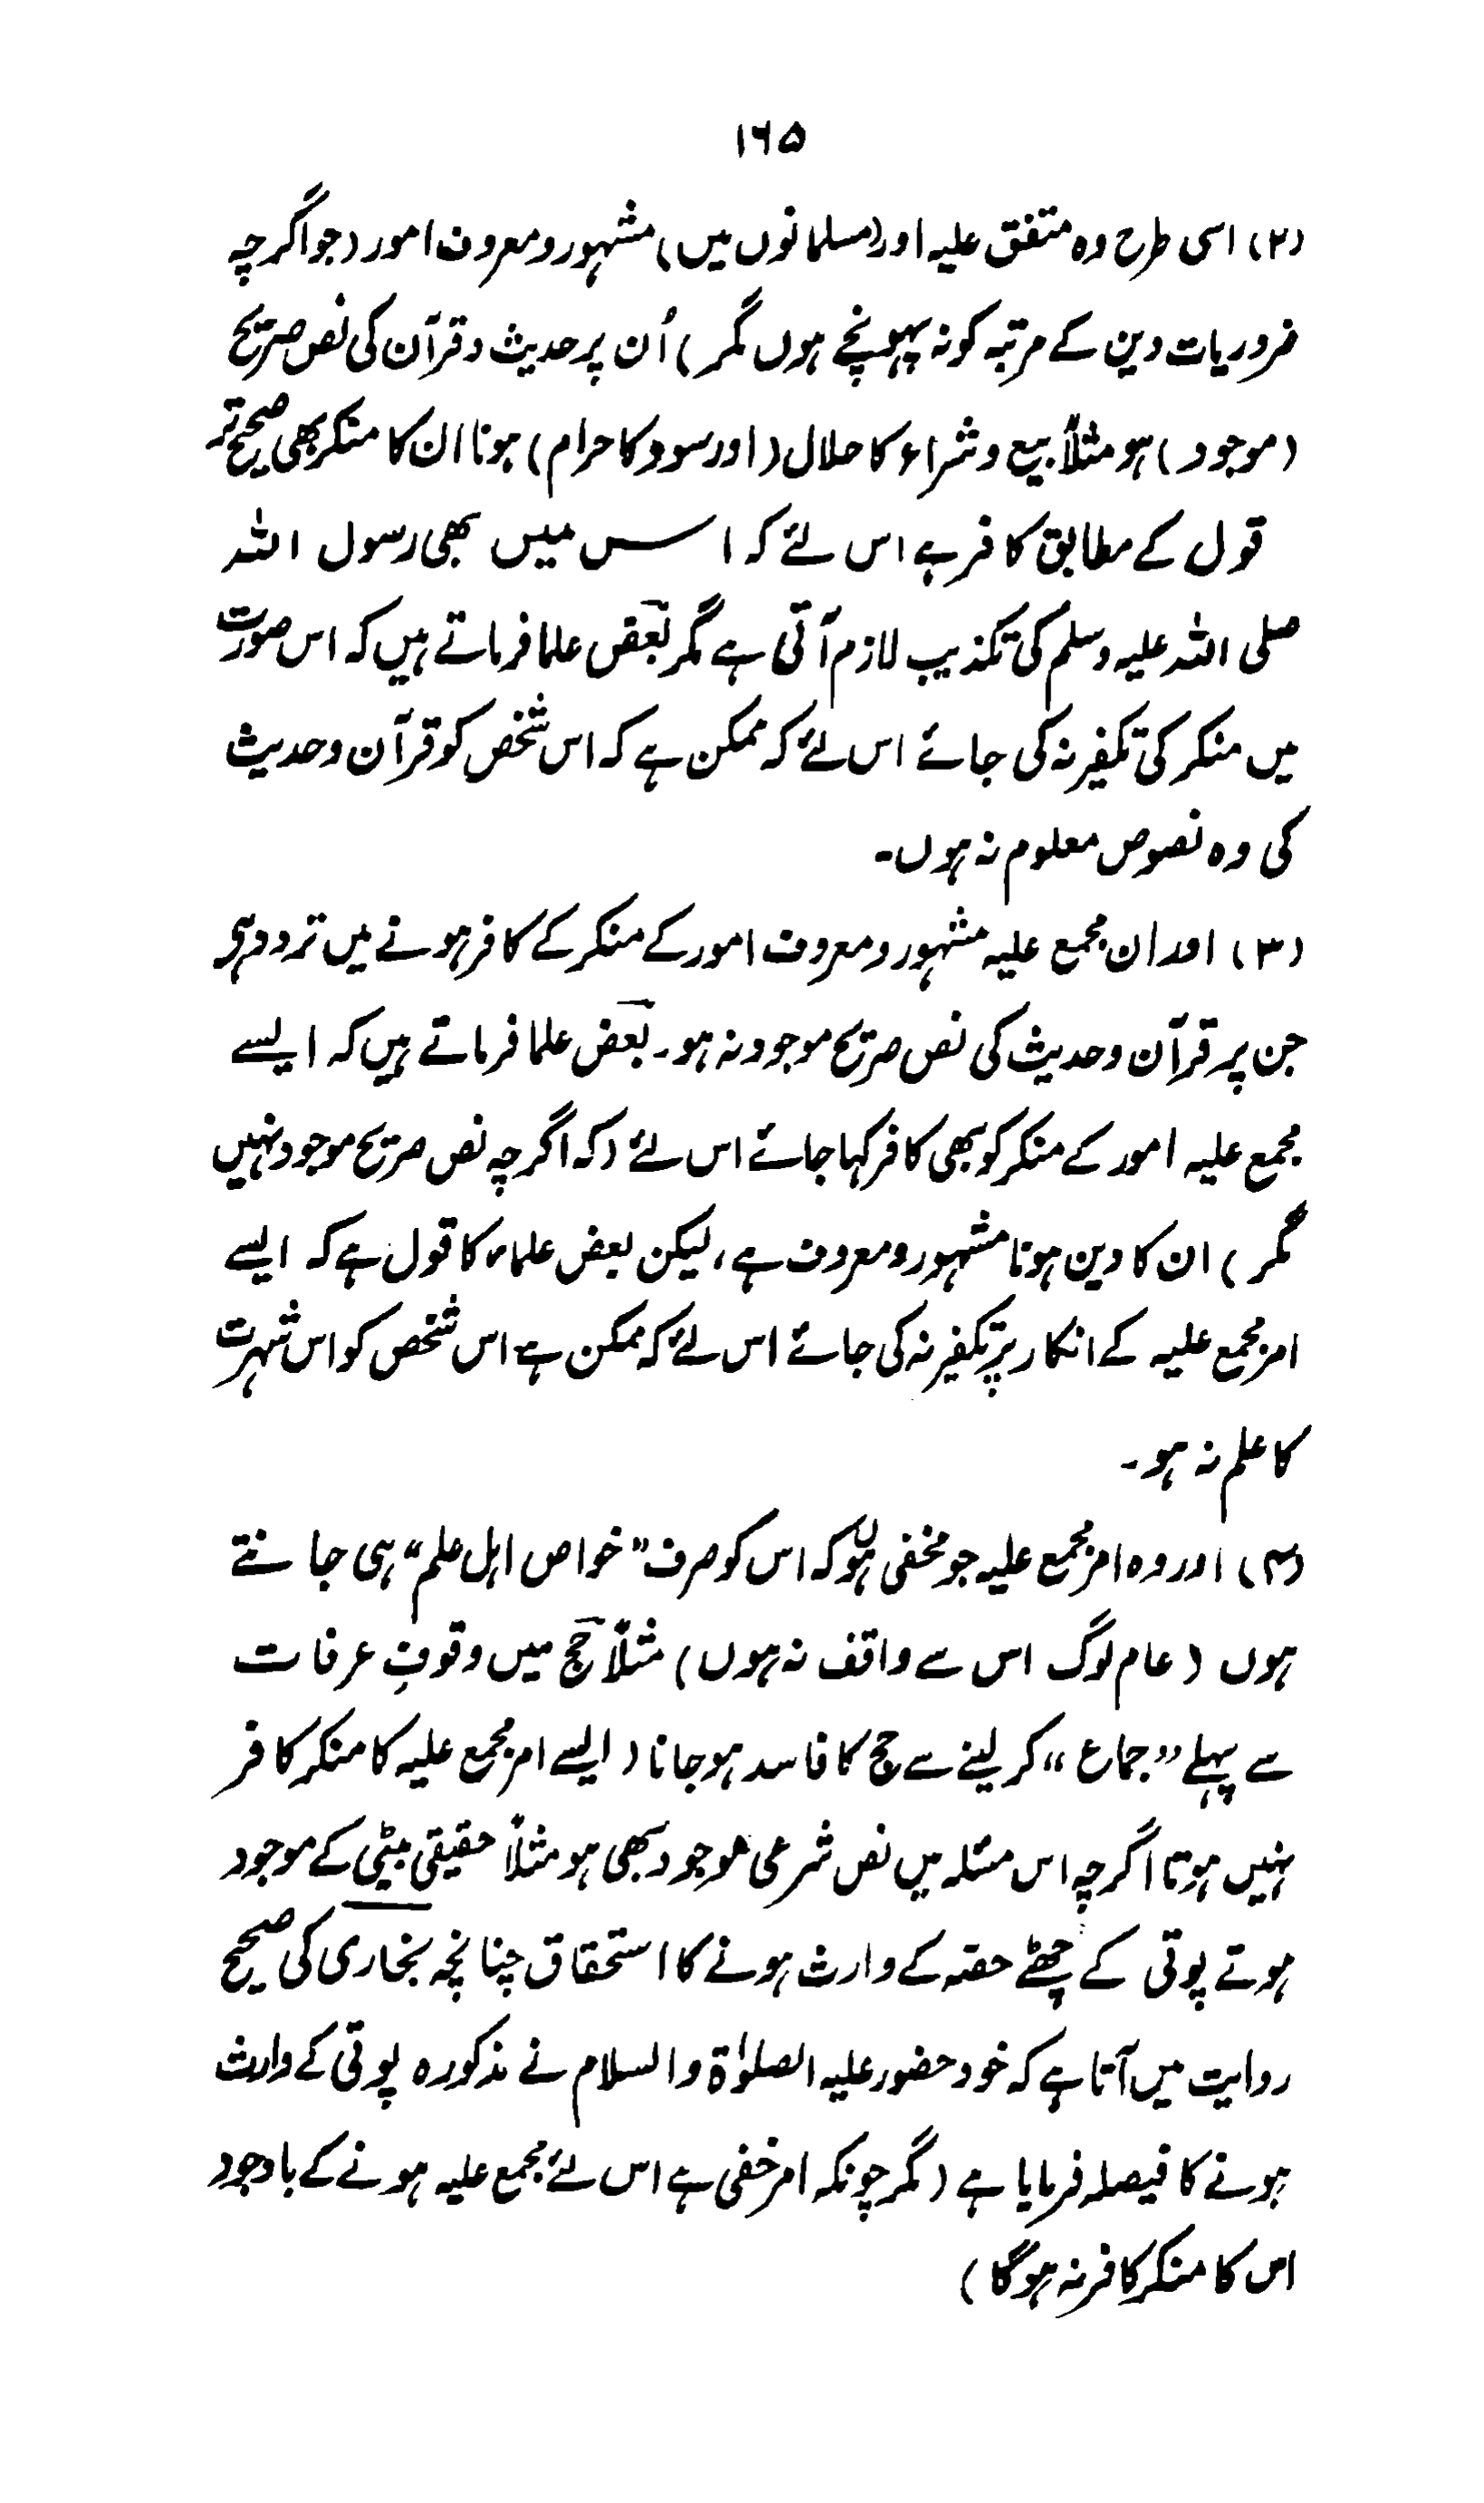 ۱۶۵
(۲) اسی طرح وہ متفق علیہ اور (مسلمانوں میں) مشہور و معروف امور (جو اگرچہ
ضروریات دین کے مرتبہ کو نہ پہونچے ہوں مگر) اُن پر حدیث و قرآن کی نص صریح
(موجود) ہو مثلاً بیع و شراء کا حلال (اور سود کا حرام) ہونا ان کا منکر بھی صحیح تر
قول کے مطابق کافر ہے اس لئے کہ اس میں بھی رسول اللہ
صلی اللہ علیہ وسلم کی تکذیب لازم آتی ہے مگر بعض علما فرماتے ہیں کہ اس صورت
میں منکر کی تکفیر نہ کی جائے اس لئے کہ ممکن ہے کہ اس شخص کو قرآن و حدیث
کی وہ نصوص معلوم نہ ہوں۔
(۳) اور ان مجمع علیہ مشہور و معروف امور کے منکر کے کافر ہونے میں تردد ہے
جن پر قرآن و حدیث کی نص صریح موجود نہ ہو۔ بعض علما فرماتے ہیں کہ ایسے
مجمع علیہ امور کے منکر کو بھی کافر کہا جائے اس لئے (کہ اگرچہ نص صریح موجود نہیں
مگر) ان کا دین ہونا مشہور و معروف ہے، لیکن بعض علماء کا قول ہے کہ ایسے
امر مجمع علیہ کے انکار پر تکفیر نہ کی جائے اس لئے کہ ممکن ہے اس شخص کو اس شہرت
کا علم نہ ہو۔
(۴) اور وہ امر مجمع علیہ جو مخفی ہو کہ اس کو صرف "خواص اہل علم" ہی جانتے
ہوں (عام لوگ اس سے واقف نہ ہوں) مثلاً حج میں وقوفِ عرفات
سے پہلے "جماع" کر لینے سے حج کا فاسد ہو جانا (ایسے امر مجمع علیہ کا منکر کافر
نہیں ہوتا اگرچہ اس مسئلہ میں نص شرعی موجود بھی ہو مثلاً حقیقی بیٹی کے موجود
ہوتے پوتی کے چھٹے حصّہ کے وارث ہونے کا استحقاق چنانچہ بخاری کی صحیح
روایت میں آتا ہے کہ خود حضور علیہ الصلوٰۃ والسلام نے مذکورہ پوتی کے وارث
ہونے کا فیصلہ فرمایا ہے (مگر چونکہ امر خفی ہے اس لئے مجمع علیہ ہونے کے باوجود
اس کا منکر کافر نہ ہوگا)